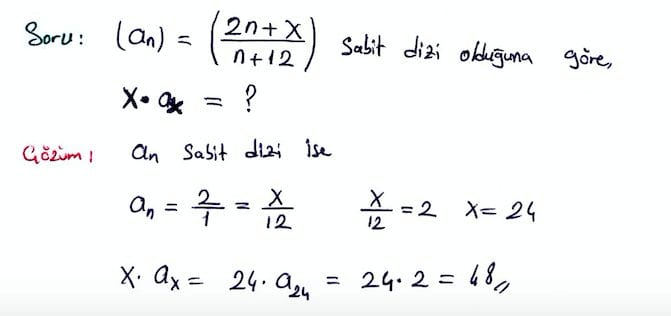 Soru: (an) = (2n+x / n+12) Sabit dizi olduğuna göre,
x. ax = ?
Çözüm: an Sabit dizi ise
an = 2/1 = x/12    x/12 = 2    x = 24
x. ax = 24. a24 = 24. 2 = 48//